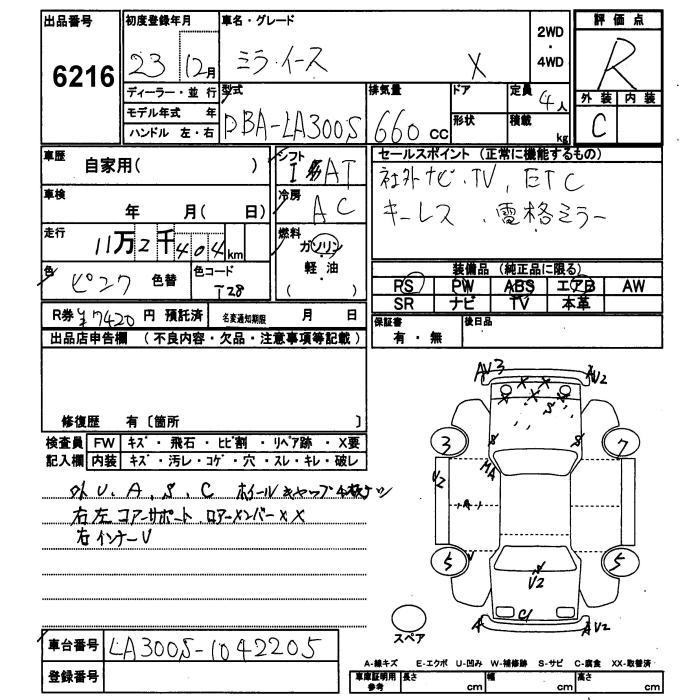 出品番号 初度登録年月 車名・グレード 2WD・4WD 評価点
6216 23 12月 ミラ・イース X R
ディーラー・並行 型式 排気量 ドア 定員 4人 外装 内装
モデル年式 年 DBA-LA300S 660cc 形状 積載 kg C
ハンドル 左・右
車歴 自家用( ) シフト I AT セールスポイント (正常に機能するもの)
車検 年 月( 日) 冷房 AC 社外ナビ.TV, ETC
走行 11万2千404km 燃料 ガソリン キーレス .電格ミラー
軽・油
( )
色 ピンク 色替 色コード T28 装備品 (純正品に限る)
PS PW ABS エアB AW
SR ナビ TV 本革
R券 ¥7420 円 預託済 名変通知期限 月 日 保証書 有・無 後日品
出品店申告欄 (不良内容・欠品・注意事項等記載)
修復歴 有〔箇所 〕
検査員 FW キズ・飛石・ヒビ割・リペア跡・X要
記入欄 内装 キズ・汚レ・コゲ・穴・スレ・キレ・破レ
外 U, A, S, C ホイールキャップ
右左コアーサポート.ロアーメンバーXX
右インナーU
車台番号 LA300S-1042205
登録番号
AU3 AU2
X X X
X X
S
S S
3 7
MA
U2
A
5 5
S
U2
C
A AU2
スペア
A-線キズ E-エクボ U-凹み W-補修跡 S-サビ C-腐食 XX-取替済
車庫証明用参考 長さ cm 幅 cm 高さ cm